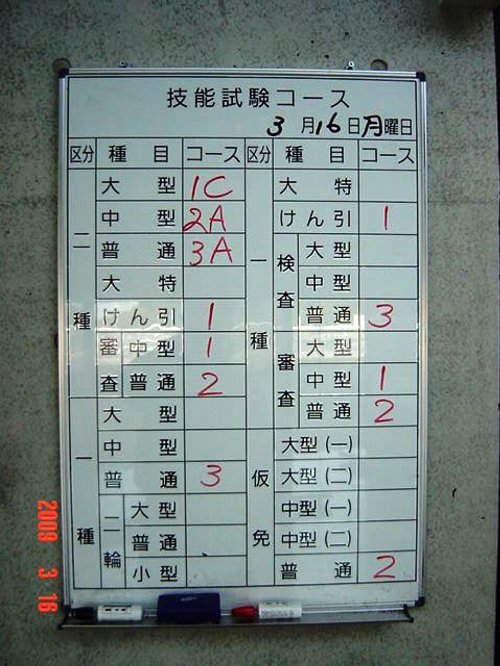 技能試験コース
3月16日月曜日
区分 種目 コース 区分 種目 コース
二種 大型 1C
中型 2A
普通 3A
大特
けん引 1
審査 中型 1
普通 2
一種 大型
中型
普通 3
二輪 大型
普通
小型
一種 大特
けん引 1
検査 大型
中型
普通 3
審査 大型
中型 1
普通 2
仮免 大型(一)
大型(二)
中型(一)
中型(二)
普通 2
2009 3 16